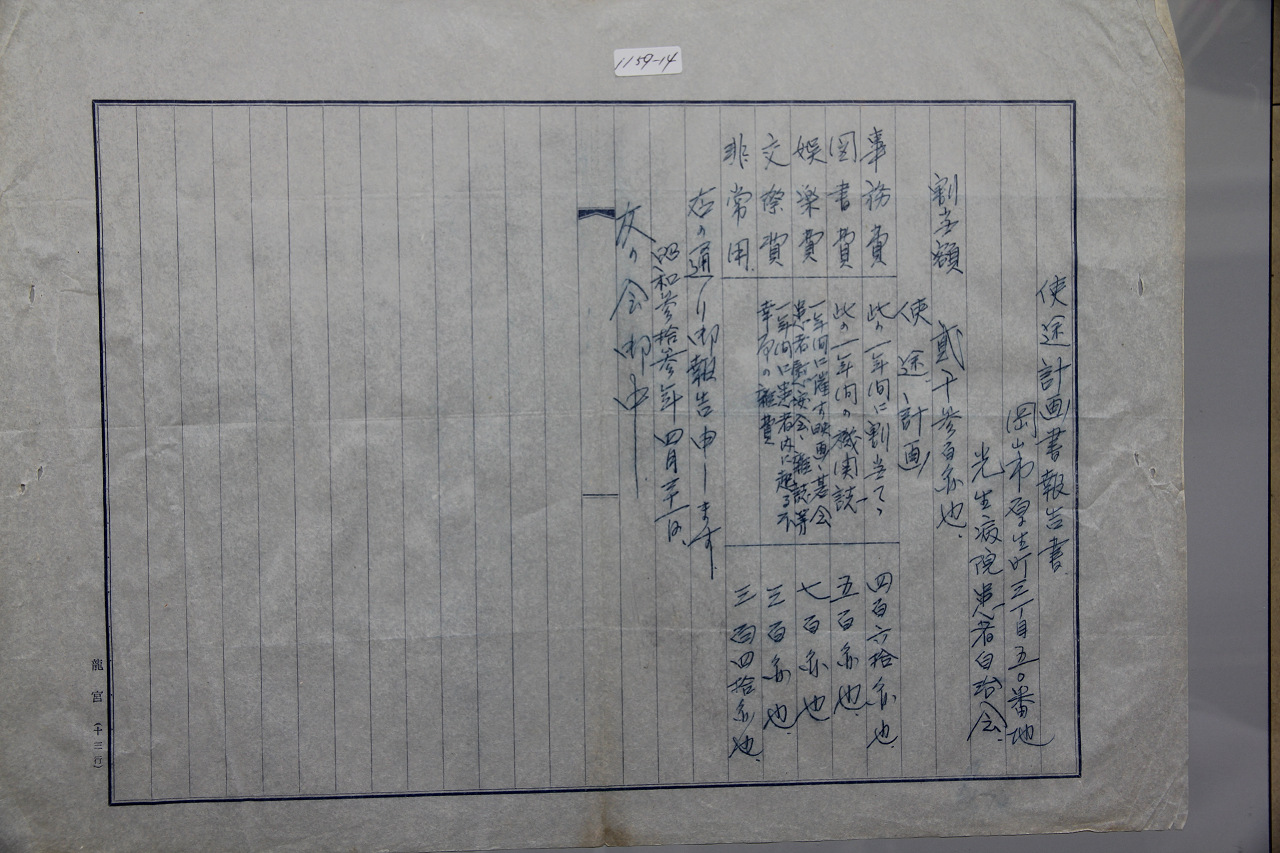 1159-14
使途計画書報告書
岡山市厚生町三丁目五〇番地
光生病院患者自治会
割当額 貳千参百円也
使途、計画
事務費 此の一年間に割当てゝ 四百六拾円也
図書費 此の一年間の機関誌 五百円也
娯楽費 一年間に催す映画、碁会 患者慰安会、雑誌等 七百円也
交際費 一年間に患者内に起る不幸等の雑費 三百円也
非常用 三百四拾円也
右の通り御報告申します
昭和参拾参年四月三十一日
友の会御中
龍宮(十三行)